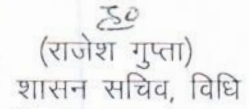 ह0
(राजेश गुप्ता)
शासन सचिव, विधि